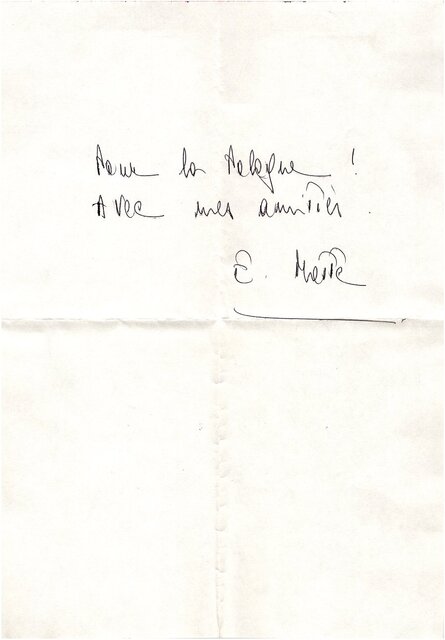 Pour la Pologne !
Avec mes amitiés.
E. Mattè